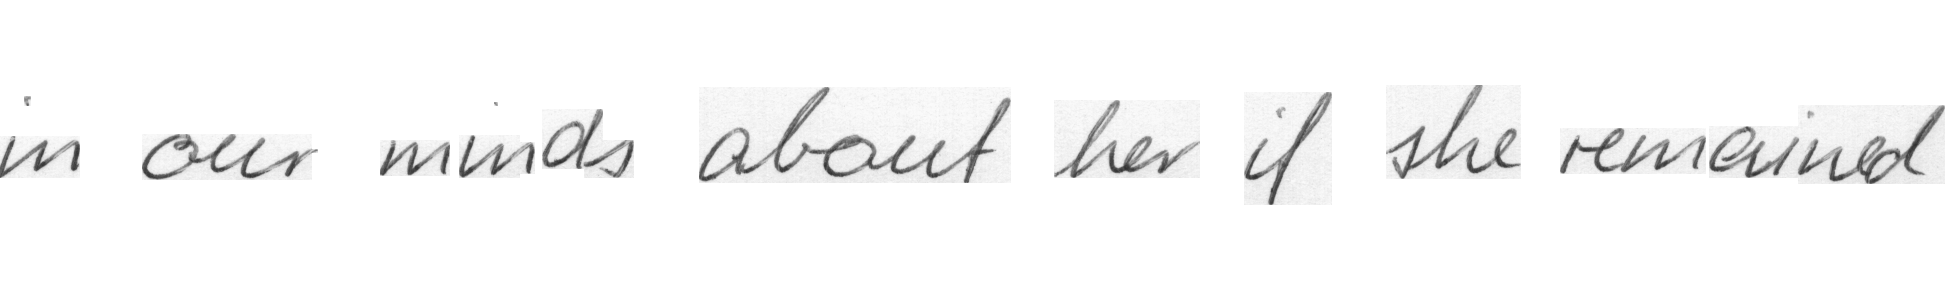 in our minds about her if she remained